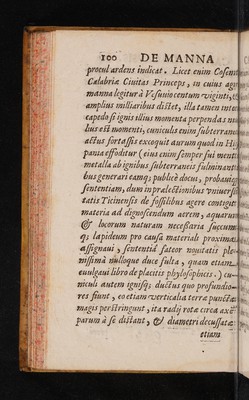 100 DE MANNA
procul ardens indicat. Licet enim Cosent
Calabriæ Ciuitas Princeps, in cuius agr
manna legitur à Vesuuio centum viginti, &
amplius milliaribus distet, illa tamen inter
capedo si ignis illius momenta perpendas nu
lius est momenti, cuniculis enim subterrane
actus fortassis excoquit aurum quod in His
pania effoditur (eius enim semper fui mentis
metalla ab ignibus subterraneis fulminanti
bus generari eamq; publicè docui, probauiq;
sententiam, dum in prælectionibus vniuersi
tatis Ticinensis de fossilibus agere contigit
materia ad dignoscendum aerem, aquarum
& locorum naturam necessaria succum
q; lapideum pro causa materiali proxima
assignaui, sententia fateor nouitatis ple
nissima nulloque duce fulta, quam etiam
euulgaui libro de placitis phylosophicis.) cu-
niculi autem ignisq; ductus quo profundio-
res fiunt, eo etiam verticalia terræ puncta
magis perstringunt, ita radij rota circa axē
parum à se distant, & diametri decussatæ
etiam